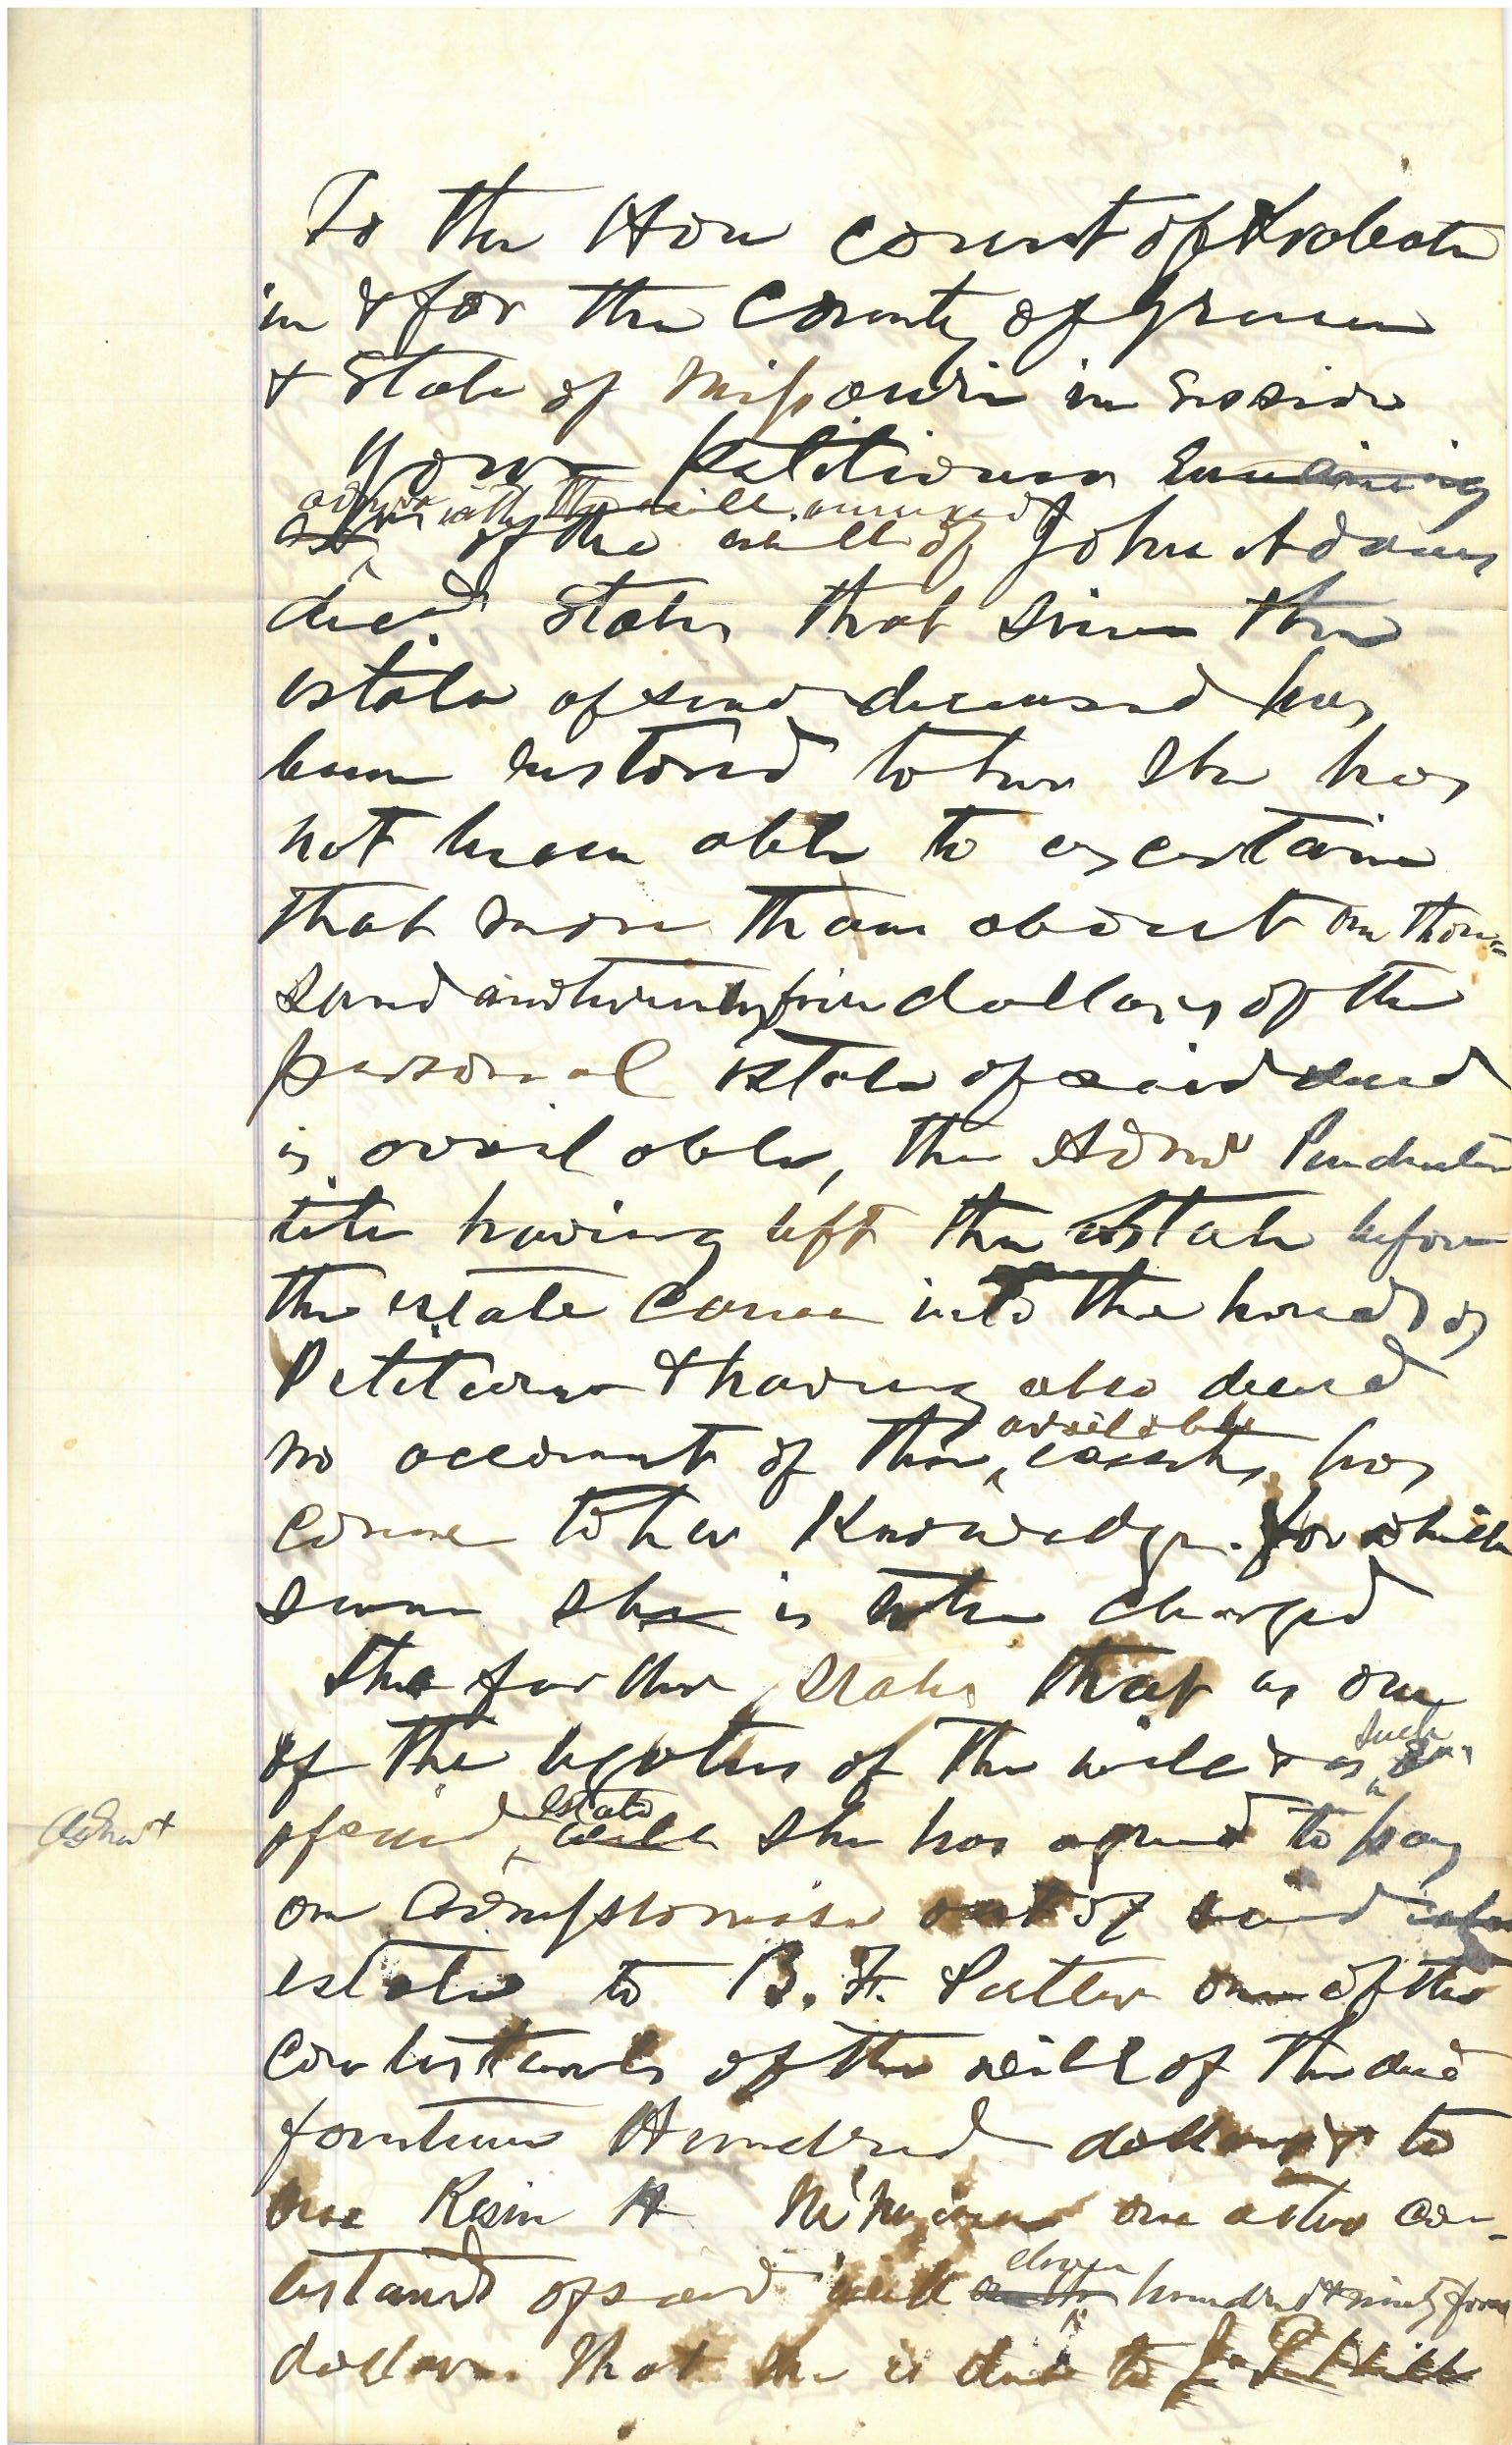 To the Hon court of Probate
in & for the County of Greene
& State of Missouri in Session
Your Petitioner
admrx with the will annexed
of the will of John Adams
decd States that since the
estate of said deceased has
been restored to her she has
not been able to ascertain
that more than about one thou=
sand and twenty five dollars of the
personal estate of said decd
is available, the Admr Pendente
lite having left the estate before
the estate came into the hands of
Petitioner & having also died
no account of these
available
assets has
come to her Knowledge. for which
sum she is to be charged
She further states that as one
of the legatees of the will & as
such
Admrx
of said
estate
will she has agreed to pay
on compromise out of said
estate to B. F. Patten one of the
contestants of the will of the decd
fourteen Hundred dollars to
one Resin H one other con-
testant of said will
eleven
hundred & ninety four
dollars. That she is due to J.